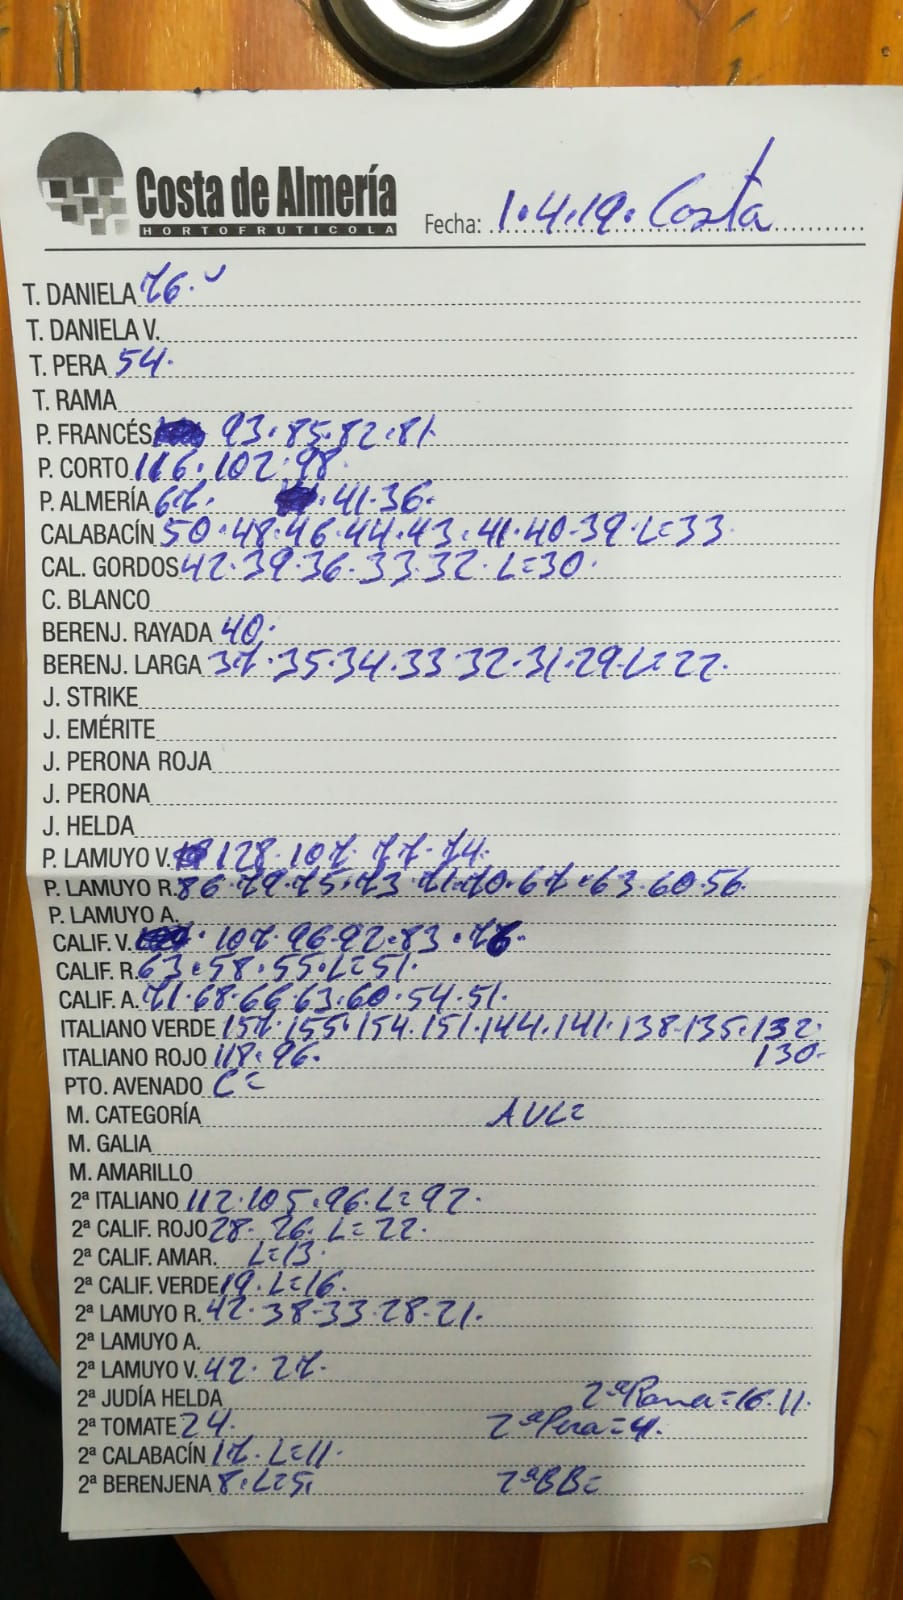 Costa de Almería
HORTOFRUTICOLA
Fecha: 1.4.19. Costa
T. DANIELA 76.
T. DANIELA V.
T. PERA 54.
T. RAMA
P. FRANCÉS 93.85.82.81
P. CORTO 116.102.98.
P. ALMERÍA 67. .41.36.
CALABACÍN 50.48.46.44.43.41.40.39.L=33.
CAL. GORDOS 42.39.36.33.32.L=30.
C. BLANCO
BERENJ. RAYADA 40.
BERENJ. LARGA 37.35.34.33.32.31.29.L=22.
J. STRIKE
J. EMÉRITE
J. PERONA ROJA
J. PERONA
J. HELDA
P. LAMUYO V. 128.107.77.74.
P. LAMUYO R. 86.79.75.73.71.70.67.63.60.56.
P. LAMUYO A.
CALIF. V. .107.96.92.83.76.
CALIF. R. 63.58.55.L=51.
CALIF. A. 71.68.66.63.60.54.51.
ITALIANO VERDE 157.155.154.151.144.141.138.135.132.
ITALIANO ROJO 118.96. 130.
PTO. AVENADO C=
M. CATEGORÍA AVL=
M. GALIA
M. AMARILLO
2ª ITALIANO 112.105.96.L=92.
2ª CALIF. ROJO 28.26.L=22.
2ª CALIF. AMAR. L=13.
2ª CALIF. VERDE 19.L=16.
2ª LAMUYO R. 42.38.33.28.21.
2ª LAMUYO A.
2ª LAMUYO V. 42.27.
2ª JUDÍA HELDA 2ªRama=16.11.
2ª TOMATE 24. 2ªPera=41.
2ª CALABACÍN 17.L=11.
2ª BERENJENA 8.L=5. 2ªBB=